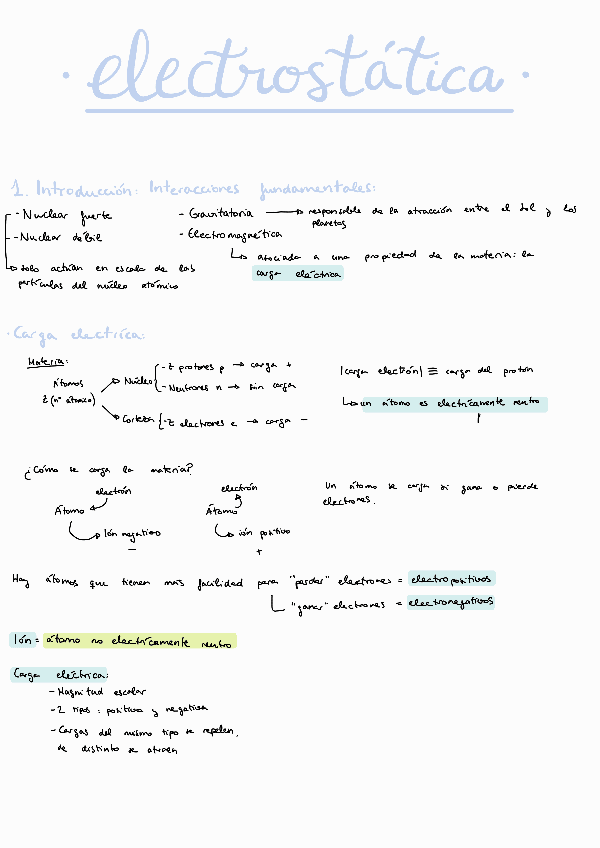 · electrostática ·
1. Introducción: Interacciones fundamentales:
- Nuclear fuerte
- Nuclear débil
↳ solo actúan en escala de las
partículas del núcleo atómico
- Gravitatoria → responsable de la atracción entre el sol y los
planetas
- Electromagnética
↳ asociada a una propiedad de la materia: la
carga eléctrica
· Carga electríca:
Materia:
Átomos
Z (nº atómico)
→ Núcleo
- Z protones p → carga +
- Neutrones n → sin carga
→ Corteza { - Z electrones e → carga -
|carga electrón| ≡ carga del protón
↳ un átomo es electrícamente neutro
¿Cómo se carga la materia?
electrón
Átomo
Ión negativo
-
electrón
Átomo
ión positivo
+
Un átomo se carga si gana o pierde
electrones.
Hay átomos que tienen más facilidad para "perder" electrones = electropositivos
"ganar" electrones = electronegativos
Ión = átomo no electrícamente neutro
Carga eléctrica:
- Magnitud escalar
- 2 tipos: positiva y negativa
- Cargas del mismo tipo se repelen,
de distinto se atraen